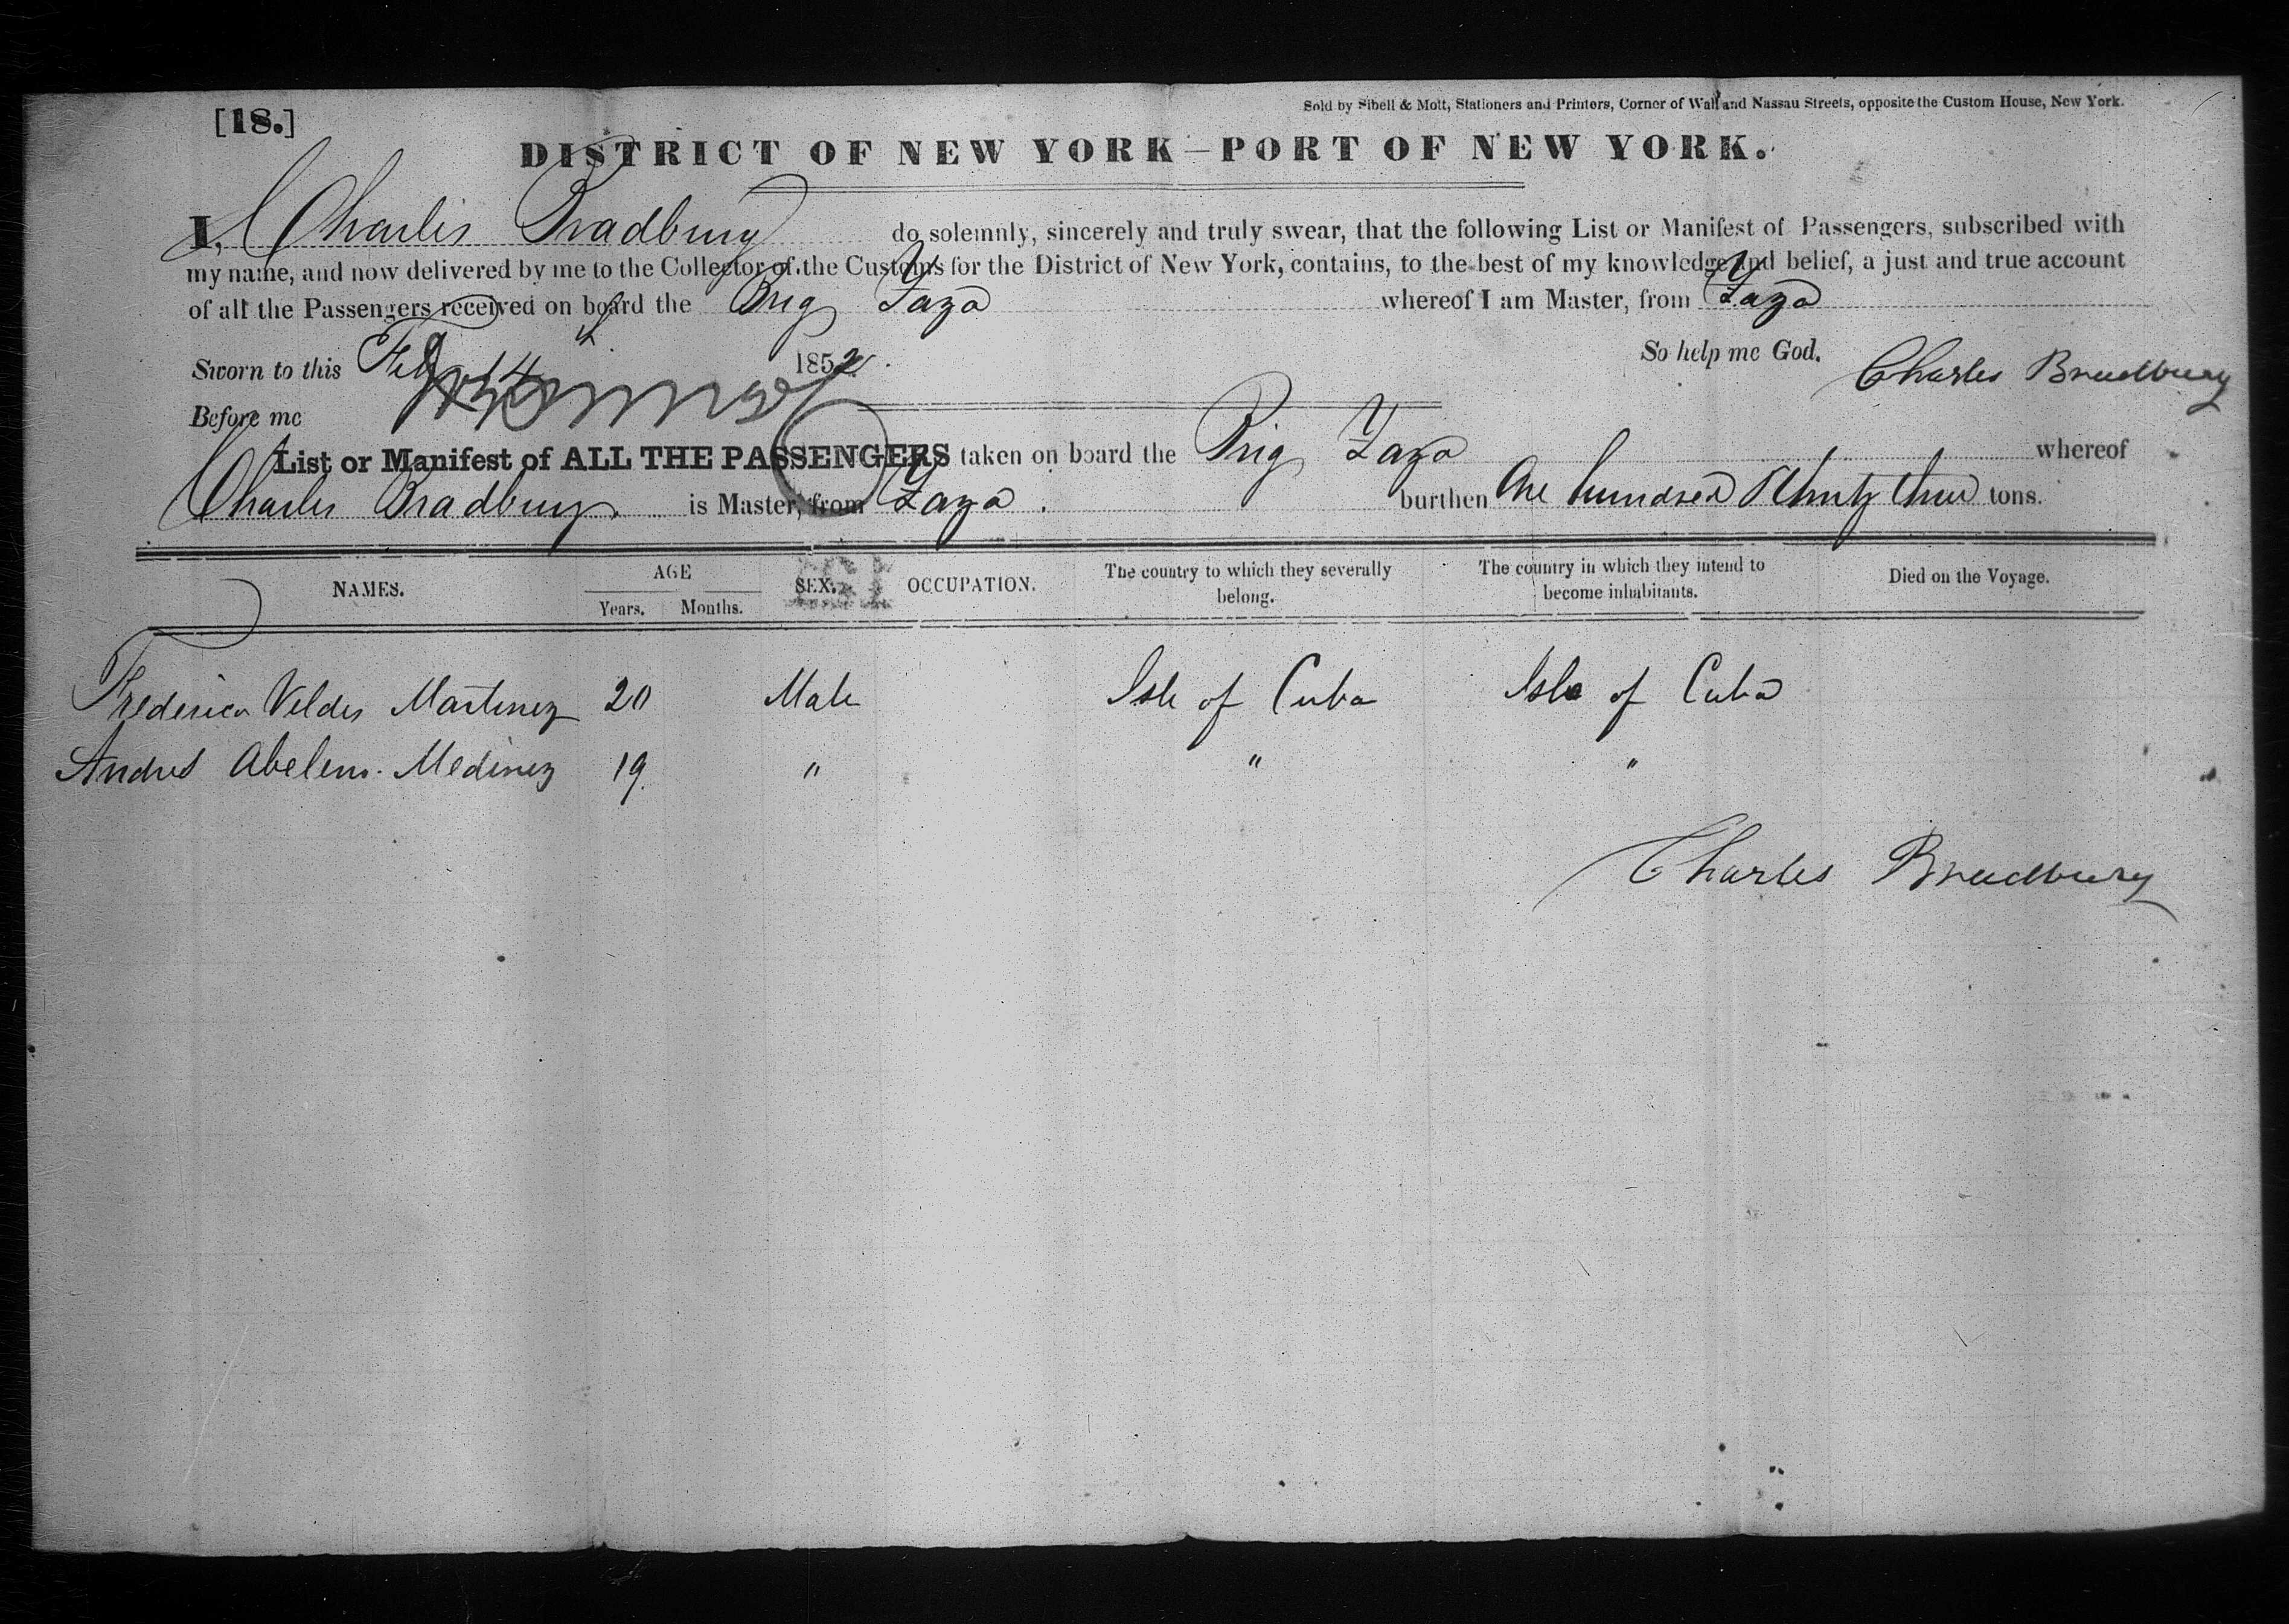 [18.]
Sold by Sibell & Mott, Stationers and Printers, Corner of Wall and Nassau Streets, opposite the Custom House, New York.
DISTRICT OF NEW YORK—PORT OF NEW YORK.
I, Charles Bradbury do solemnly, sincerely and truly swear, that the following List or Manifest of Passengers, subscribed with
my name, and now delivered by me to the Collector of the Customs for the District of New York, contains, to the best of my knowledge and belief, a just and true account
of all the Passengers received on board the Brig Zaza whereof I am Master, from Zaza
Sworn to this Feb 14 1852. So help me God. Charles Bradbury
Before me
List or Manifest of ALL THE PASSENGERS taken on board the Brig Zaza whereof
Charles Bradbury is Master, from Zaza. burthen One hundred thirty three tons.
NAMES. AGE Years. Months. SEX. OCCUPATION. The country to which they severally belong. The country in which they intend to become inhabitants. Died on the Voyage.
Frederica Veldes Martinez 20 Male Isle of Cuba Isle of Cuba
Andres Medinez 19. " " "
Charles Bradbury